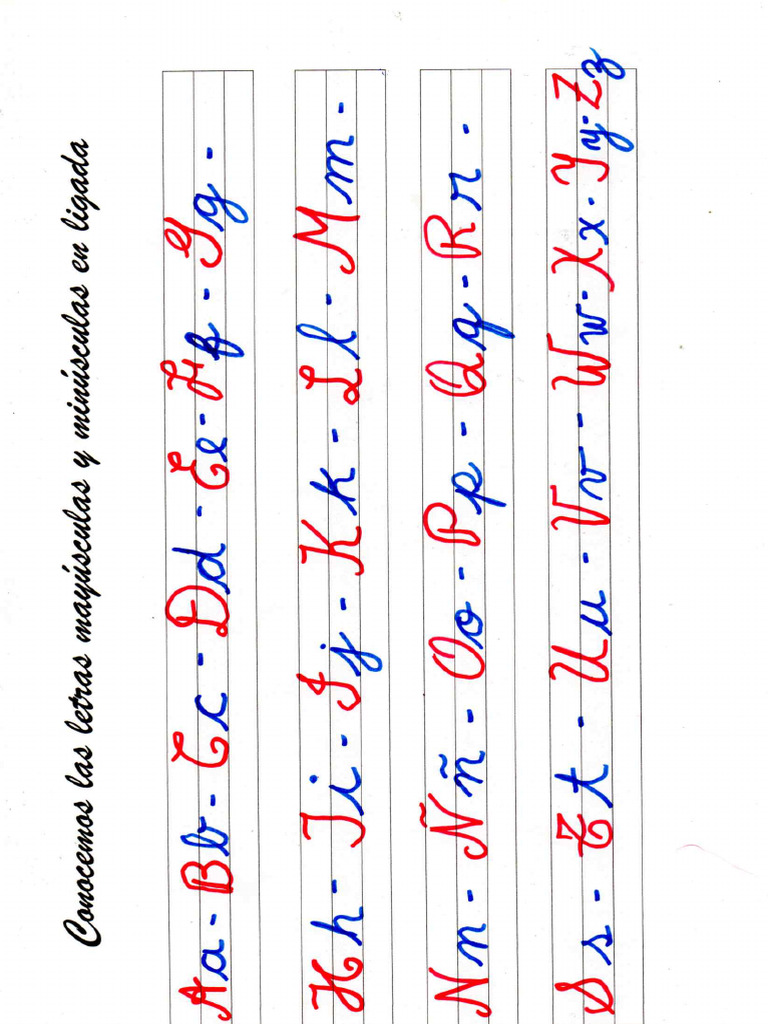 Conocemos las letras mayúsculas y minúsculas en ligada
Aa - Bb - Cc - Dd - Ee - Ff - Gg -
Hh - Ii - Jj - Kk - Ll - Mm -
Nn - Ññ - Oo - Pp - Qq - Rr -
Ss - Tt - Uu - Vv - Ww - Xx - Yy - Zz